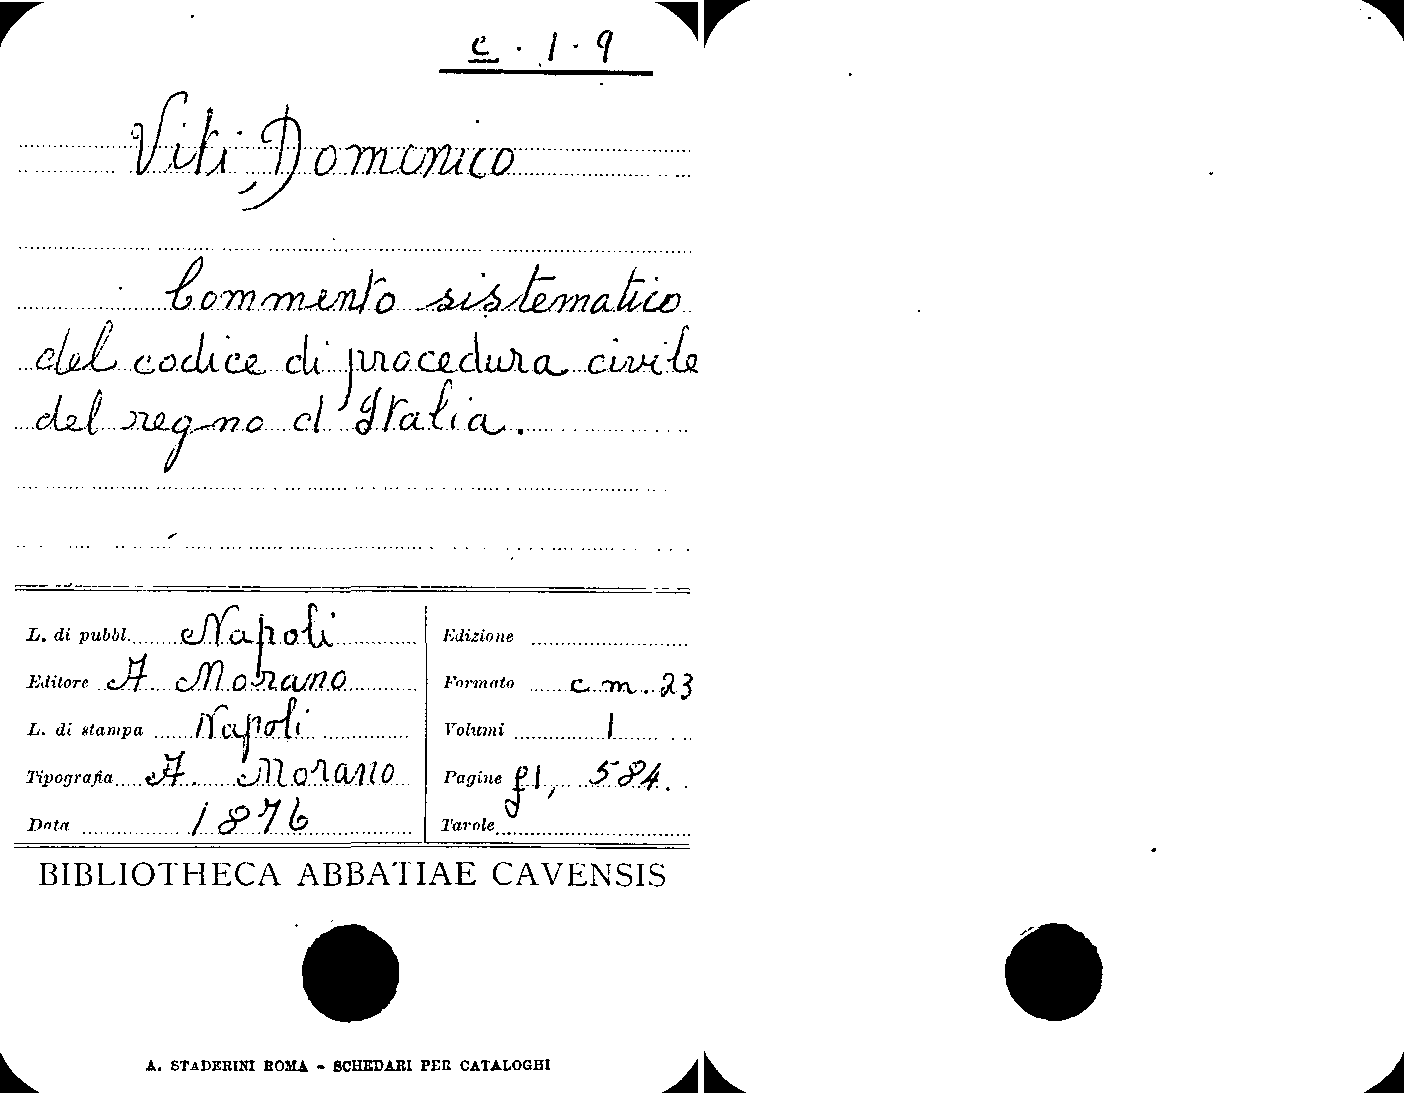 c. 1. 9
Viti, Domenico
Commento sistematico
del codice di procedura civile
del regno d'Italia.
L. di pubbl. Napoli
Editore A. Morano
L. di stampa Napoli
Tipografia A. Morano
Data 1876
Edizione
Formato cm. 23
Volumi 1
Pagine 584.
Tavole
BIBLIOTHECA ABBATIAE CAVENSIS
A. STADERINI ROMA - SCHEDARI PER CATALOGHI